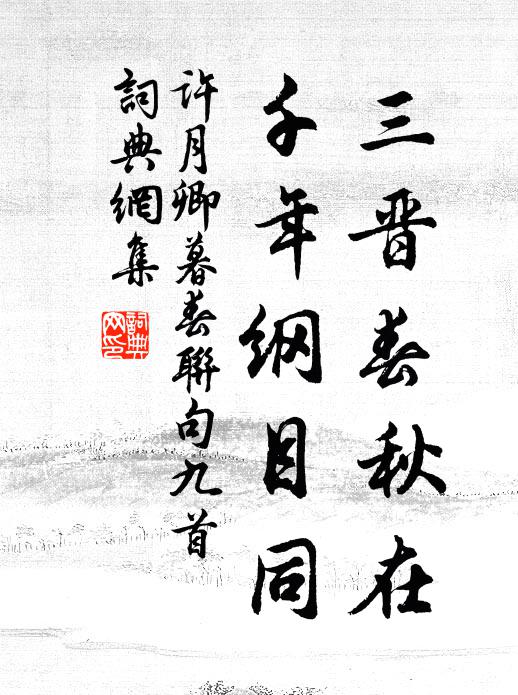 三晋春秋在
千年纲目同
許月卿暮春聯句九首
詞典網集
詞典
网印